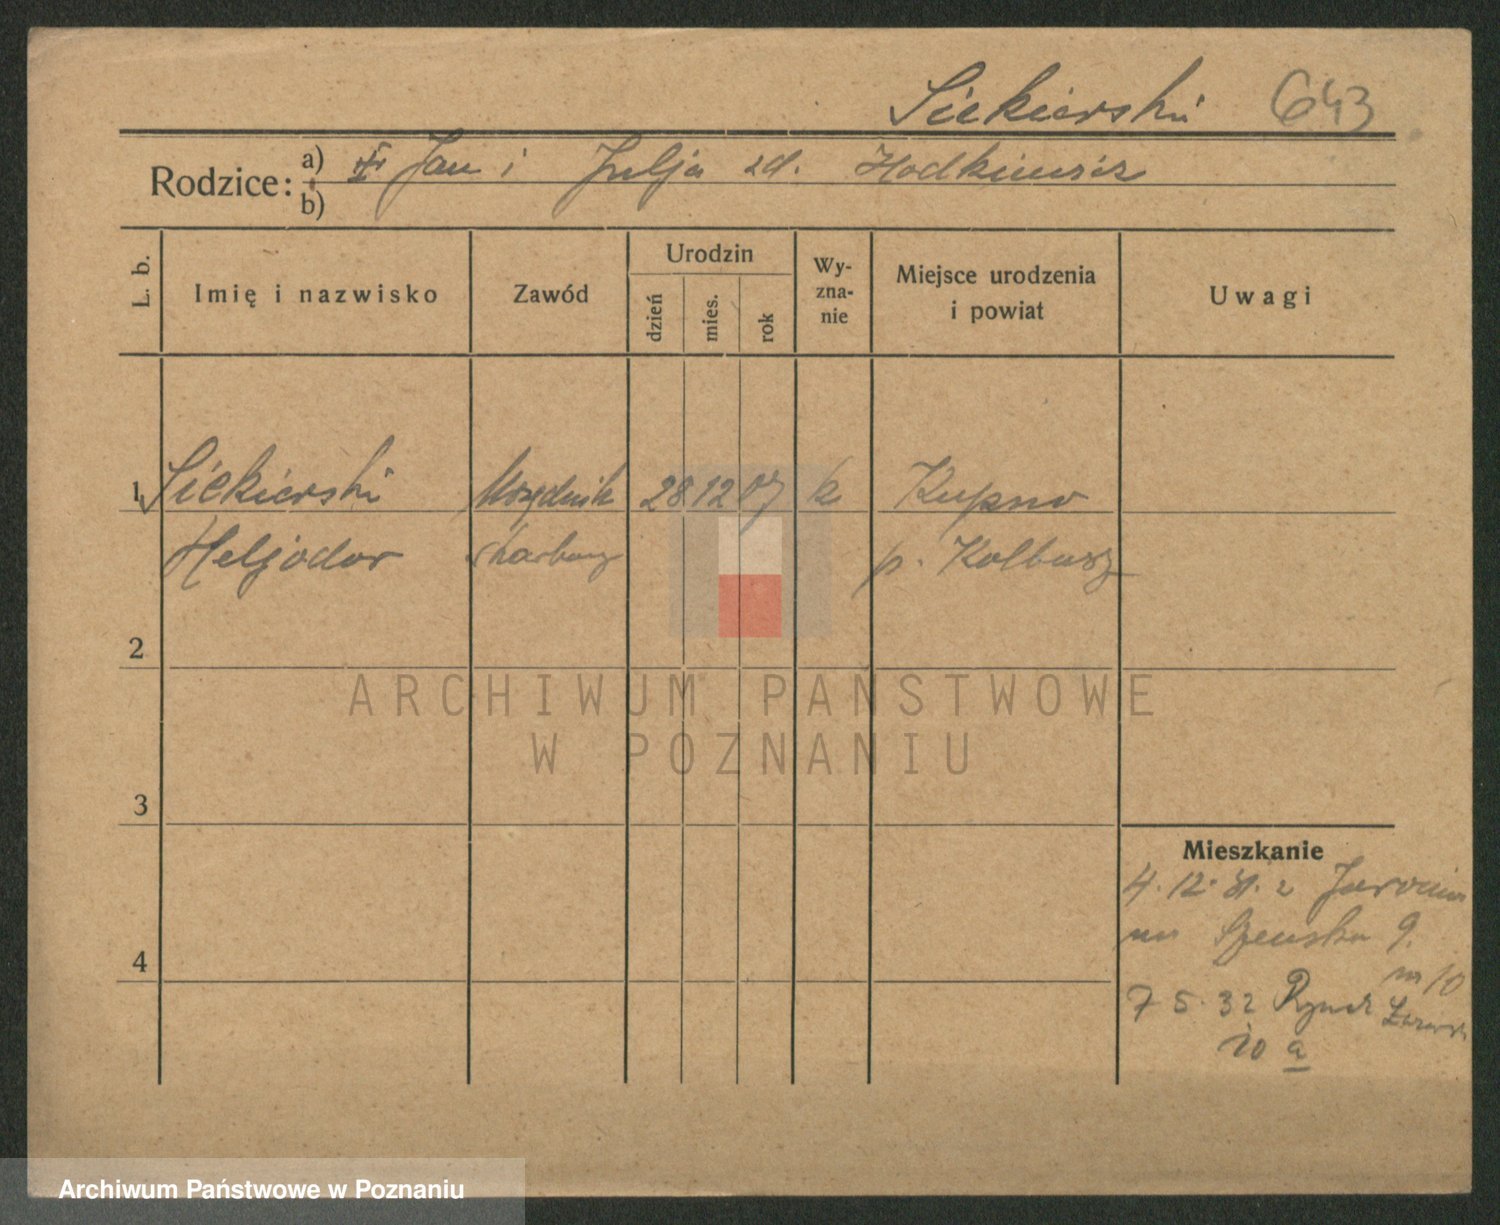 Siekierski 643
Rodzice: a) Jan i Julja zd. Hodkiewicz
b)
L. b. Imię i nazwisko Zawód Urodzin dzień mies. rok Wy-zna-nie Miejsce urodzenia i powiat Uwagi
1 Siekierski Urzędnik 28 12 07 k Kupno
Heljodor skarbowy p. Kolbusz
2
ARCHIWUM PAŃSTWOWE
W POZNANIU
3
4
Mieszkanie
4. 12. 31. z Jarocina
9.
m 10
7 5. 32 Rynek
10 a
Archiwum Państwowe w Poznaniu